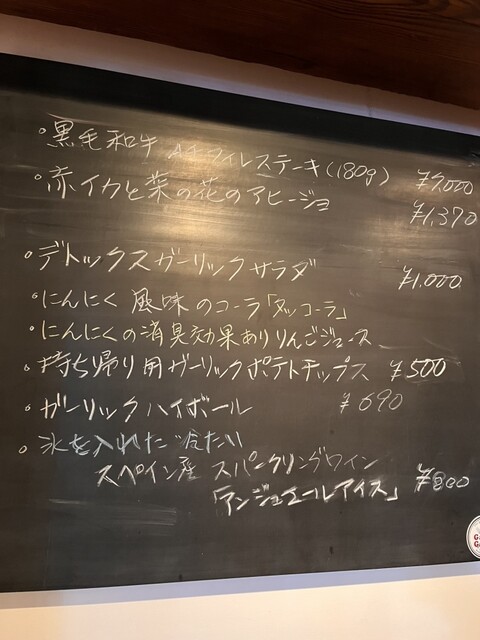 ・黒毛和牛 A4フィレステーキ(180g) ¥7,000
・赤イカと菜の花のアヒージョ ¥1,370
・デトックスガーリックサラダ ¥1,000
・にんにく風味のコーラ「ダッコーラ」
・にんにくの消臭効果ありりんごジュース
・持ち帰り用ガーリックポテトチップス ¥500
・ガーリックハイボール ¥690
・氷を入れた冷たい
スペイン産 スパークリングワイン
「アンジュエールアイス」 ¥800